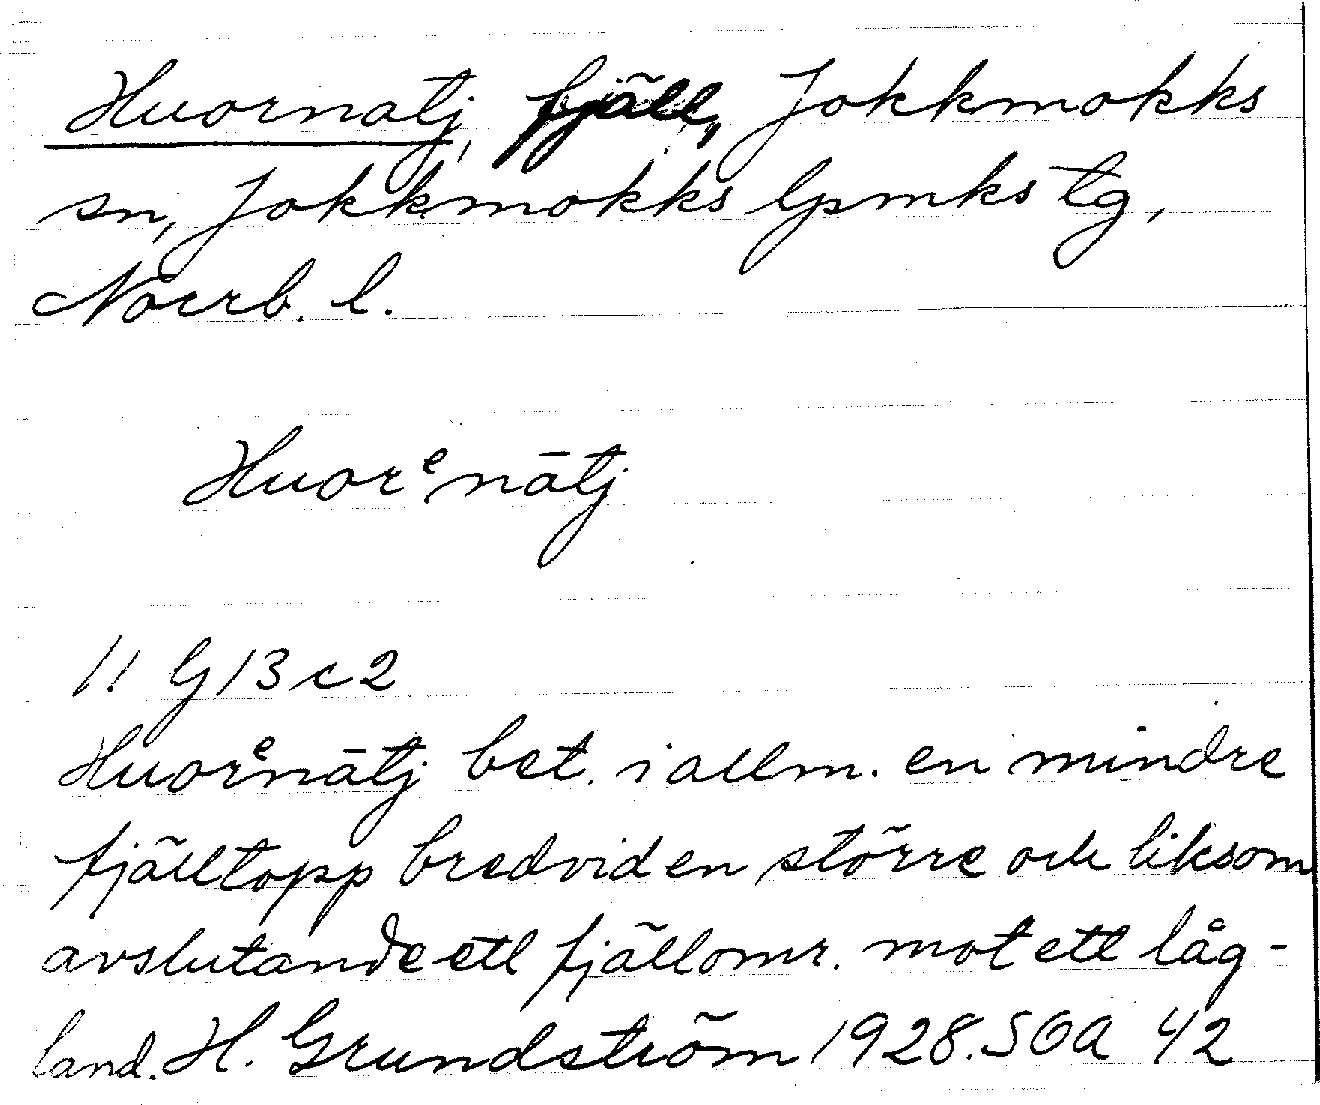 Huornatj, fjäll, Jokkmokks
sn, Jokkmokks lpmks tg,
Norrb. l.
Huorᵉnātj
1! G 13 c 2
Huorᵉnātj bet. i allm. en mindre
fjälltopp bredvid en större och liksom
avslutande ett fjällomr. mot ett låg-
land. H. Grundström 1928. SOA 42